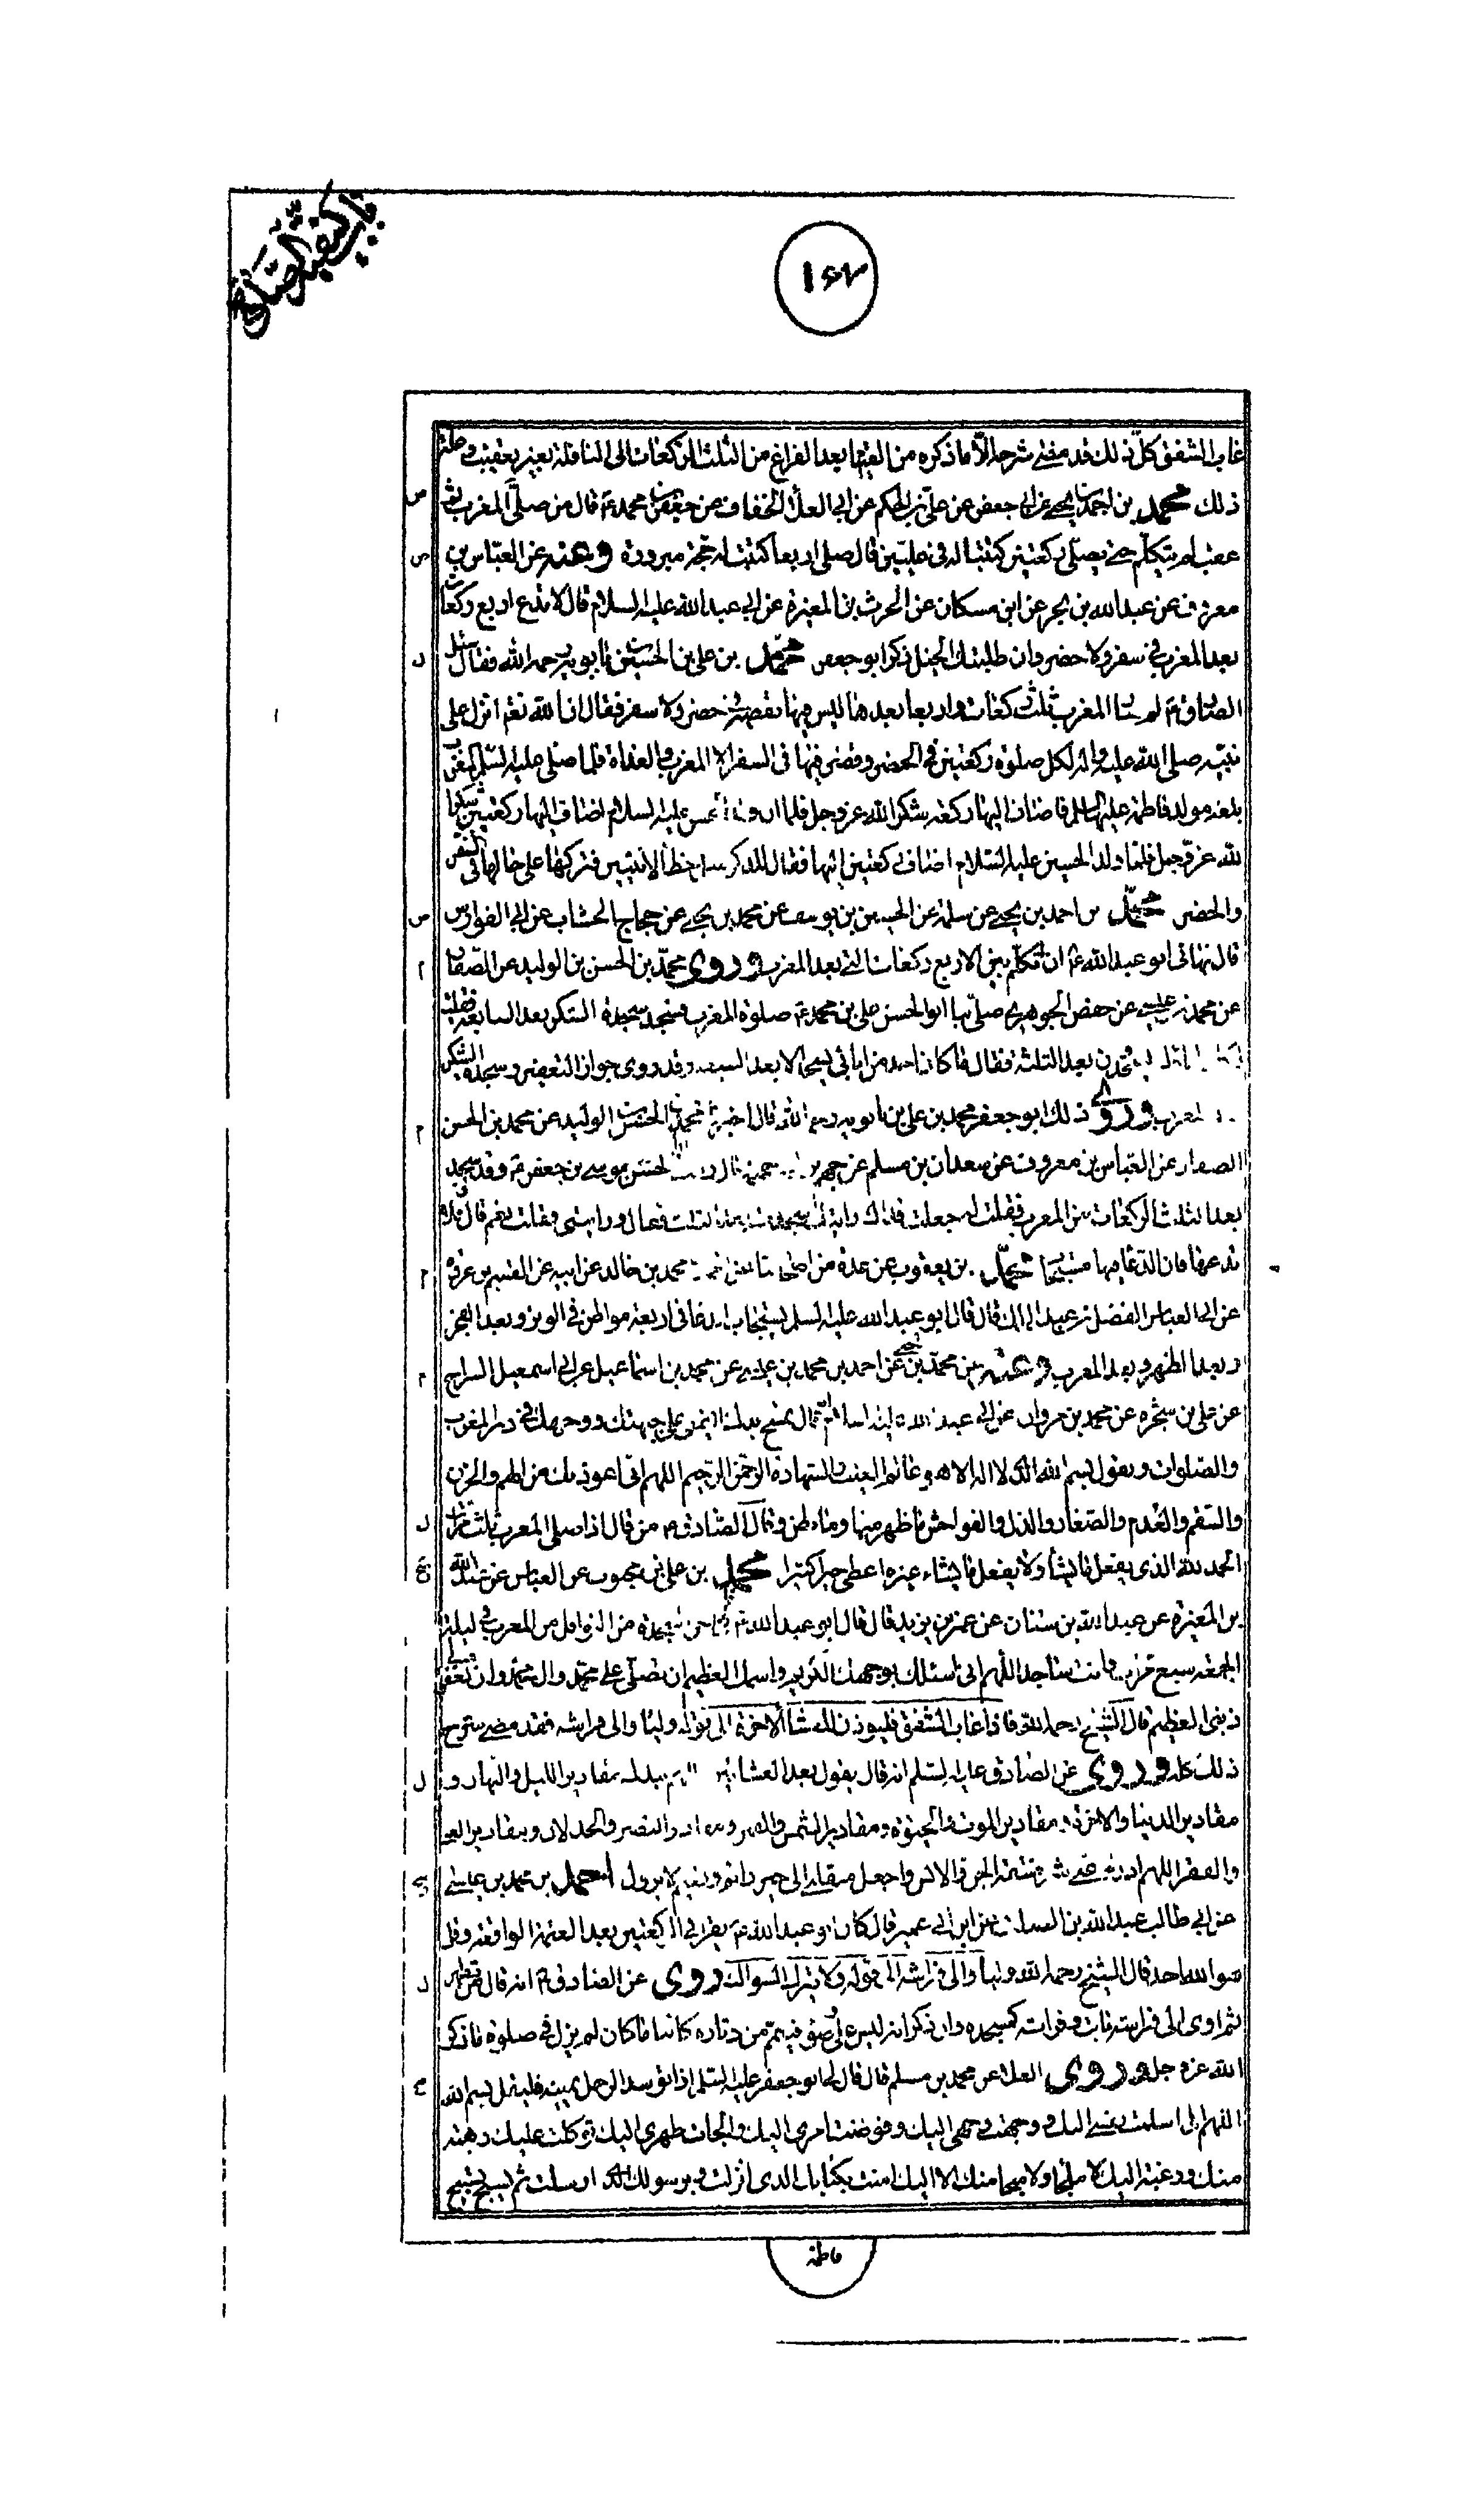 باب كيفية الصلوة
١٦٣
غاب الشفق كل ذلك قد مضى شرحه الا ما ذكره من القيام بعد الفراغ من الثلث الركعات الى النافلة بغير تعقيب
ذلك محمد بن احمد بن يحيى عن ابى جعفر عن على بن الحكم عن ابى العلاء الخفاف عن جعفر بن محمد ع قال من صلى المغرب ثم
عقب لم يتكلم حتى يصلى ركعتين كتبتا له فى عليين فان صلى اربعا كتبت له حجة مبرورة وعنه عن العباس بن
معروف عن عبد الله بن بحر عن ابن مسكان عن الحرث بن المغيرة عن ابى عبد الله عليه السلام قال لا تدع اربع ركعات
بعد المغرب فى سفر ولا حضر وان طلبتك الخيل ذكر ابو جعفر محمد بن على بن الحسين بن بابويه رحمه الله فقال سئل
الصادق ع لم المغرب ثلث ركعات واربعا بعدها ليس فيها تقصير فى حضر ولا سفر فقال ان الله تعم انزل على
نبيه صلى الله عليه واله لكل صلوة ركعتين فى الحضر وقصر فيها فى السفر الا المغرب والغداة فلما صلى عليه السلم المغرب
بلغه مولد فاطمة عليها السلم فاضاف اليها ركعة شكرا لله عز وجل فلما ان عليه السلام اضاف اليها ركعتين شكرا
لله عز وجل فلما ولد الحسين عليه السلام اضاف ركعتين اليها فقال للذكر حظ الانثيين فتركها على حالها فى السفر
والحضر محمد بن احمد بن يحيى عن سلمة عن الحسين بن يوسف عن محمد بن يحيى عن حجاج الخشاب عن ابى الفوارس
قال نهانى ابو عبد الله ع ان اتكلم بين الاربع ركعات التى بعد المغرب وروى محمد بن الحسن بن الوليد عن الصفار
عن محمد بن عيسى عن حفص الجوهرى صلى بنا ابو الحسن على بن محمد ع صلوة المغرب فسجد سجدة الشكر بعد السابعة فقلت
بعد الثلثة فقال ما كان احد من ابائى يسجد الا بعد السبعة وقد روى جواز التعفير وسجدة الشكر
وروى ذلك ابو جعفر محمد بن على بن بابويه رحمه الله قال اخبرنى محمد بن الحسن بن الوليد عن محمد بن الحسن
الصفار عن العباس بن معروف عن سعدان بن مسلم عن جهم قال الحسن موسى بن جعفر ع وقد سجد
بعد الثلاث الركعات من المغرب فقلت له جعلت فداك رايتك سجدت بعد الثلث فقال ورايتنى فقلت نعم قال فلا
تدعها فان الدعاء فيها مستجاب محمد بن يعقوب عن عدة من اصحابنا عن محمد بن خالد عن ابيه عن القسم بن عروة
عن ابى العباس الفضل بن عبد الملك قال قال ابو عبد الله عليه السلم يستجاب الدعاء فى اربعة مواطن فى الوتر وبعد الفجر
وبعد الظهر وبعد المغرب وعنه عن محمد بن يحيى عن احمد بن محمد بن عيسى عن محمد بن اسماعيل عن ابى اسمعيل السراج
عن على بن شجرة عن محمد بن مروان عن ابى عبد الله قال تمسح بيدك اليمنى على جبهتك ووجهك فى دبر المغرب
والصلوات وتقول بسم الله الذى لا اله الا هو عالم الغيب والشهادة الرحمن الرحيم اللهم انى اعوذ بك من الهم والحزن
والسقم والعدم والصغار والذل والفواحش ما ظهر منها وما بطن وقال الصادق ع من قال اذا صلى المغرب ثلث مرات
الحمد لله الذى يفعل ما يشاء ولا يفعل ما يشاء غيره اعطى خيرا كثيرا محمد بن على بن محبوب عن العباس عن عبد الله
بن المغيرة عن عبد الله بن سنان عن عمر بن يزيد قال قال ابو عبد الله ع سجدة من النوافل من المغرب فى ليلة
الجمعة سبع مرات وانت ساجد اللهم انى اسئلك بوجهك الكريم واسمك العظيم ان تصلى على محمد وال محمد وان تغفر لى
ذنبى العظيم قال الشيخ رحمه الله فاذا غاب الشفق فليوذن للعشاء الاخرة الى قوله وليا والى فراشه فقد مضى شرح
ذلك كله وروى عن الصادق عليه السلم انه قال يقول بعد العشائين اللهم بيدك مقادير الليل والنهار و
مقادير الدنيا والاخرة ومقادير الموت والحيوة ومقادير الشمس والقمر ومقادير النصر والخذلان ومقادير الغنى
والفقر اللهم الجن والانس واجعل منقلبى الى خير دائم ونعيم لا يزول احمد بن محمد بن عيسى
عن ابى طالب عبد الله بن الصلت عن ابن ابى عمير قال كان ابو عبد الله ع يقرا فى الركعتين بعد العتمة الواقعة وقل
هو الله احد قال الشيخ رحمه الله وليا والى فراشه الى قوله ولا يترك السواك روى عن الصادق ع انه قال من تطهر
ثم اوى الى فراشه بات وفراشه كمسجده وان ذكر انه ليس على وضوء فتيمم من دثاره كائنا ما كان لم يزل فى صلوة ما ذكر
الله عز وجل وروى العلا عن محمد بن مسلم قال قال لى ابو جعفر عليه السلم اذا توسد الرجل يمينه فليقل بسم الله
اللهم انى اسلمت نفسى اليك ووجهت وجهى اليك وفوضت امرى اليك والجات ظهرى اليك توكلت عليك رهبة
منك ورغبة اليك لا ملجا ولا منجا منك الا اليك امنت بكتابك الذى انزلت وبرسولك الذى ارسلت ثم يسبح تسبيح
فاطمة